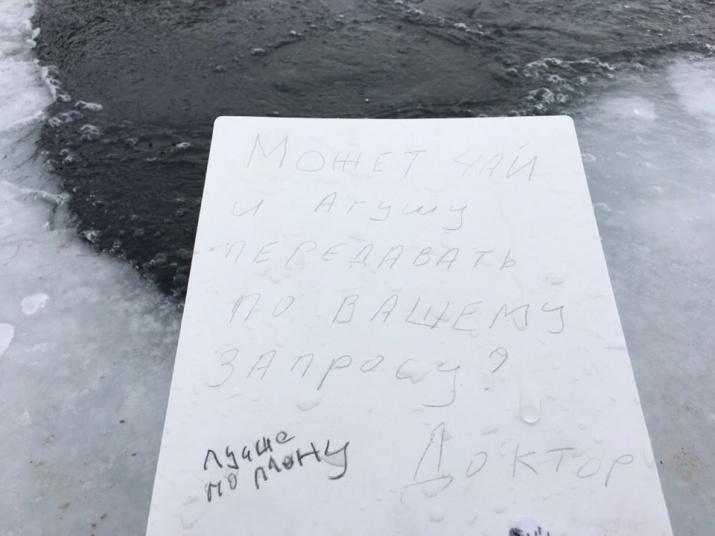 Может чай
и Агушу
передавать
по вашему
запросу?
Доктор
лучше
по плану